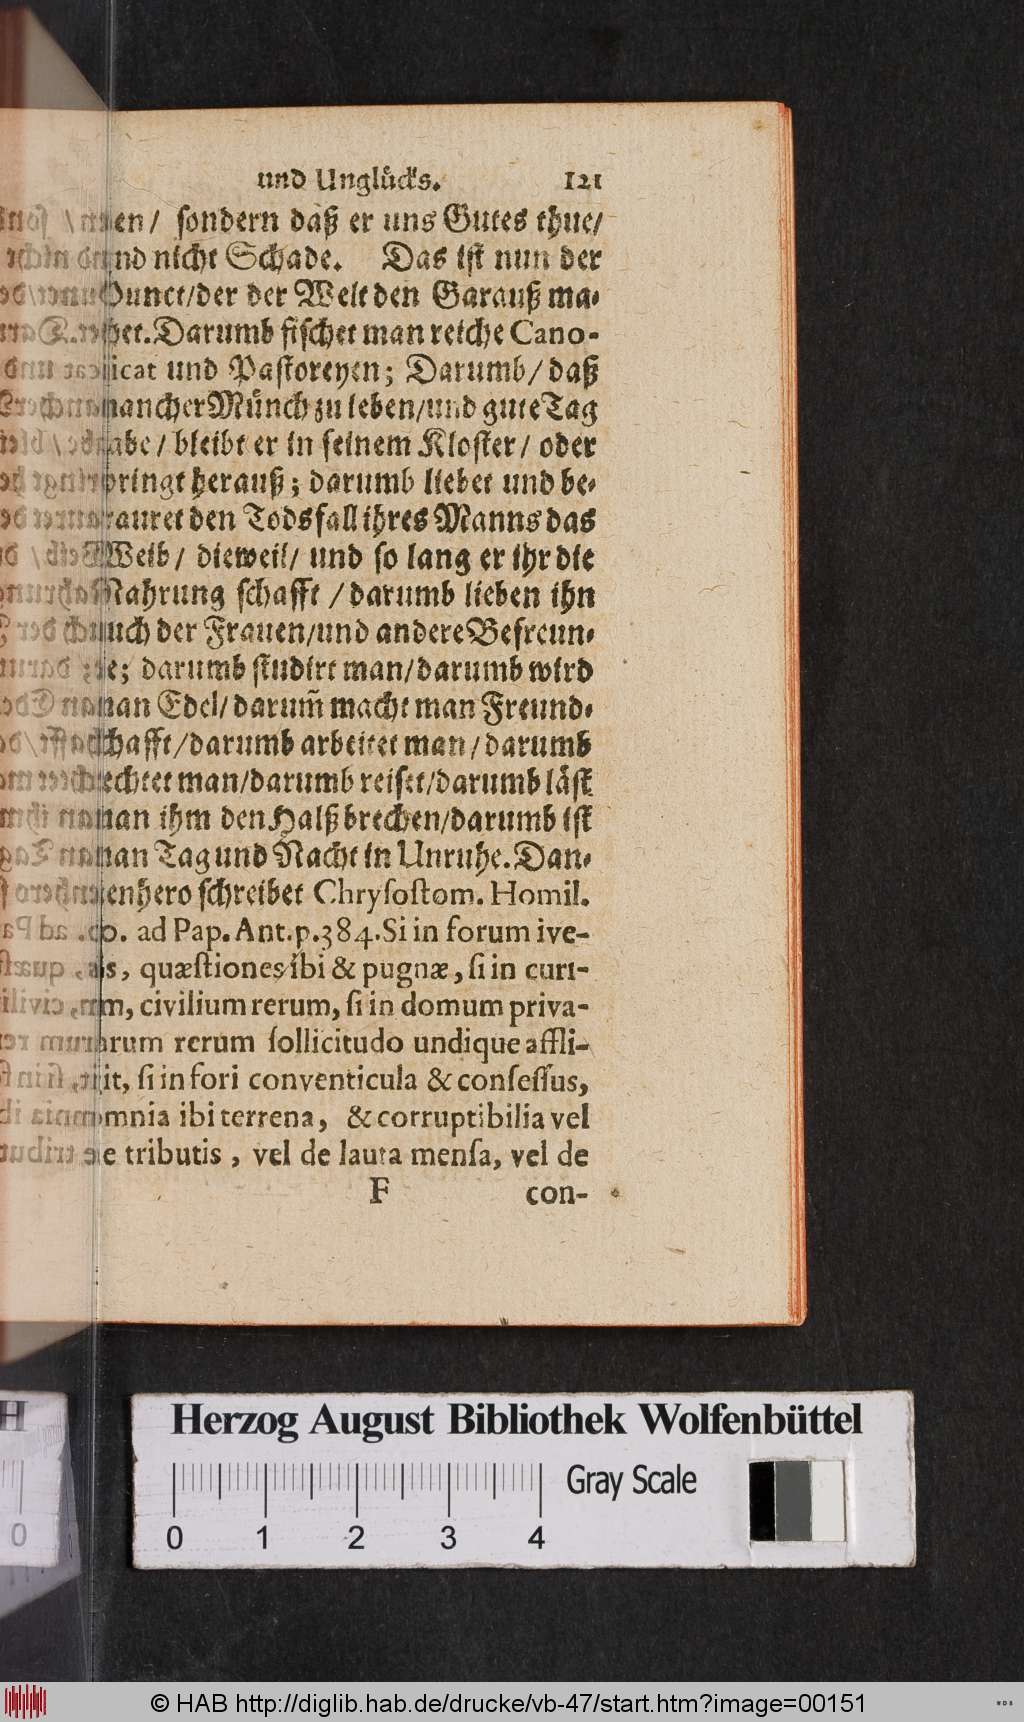 und Unglücks. 121
en/ sondern daß er uns Gutes thue/
nd nicht Schade. Das ist nun der
Punct/der der Welt den Garauß ma-
het. Darumb fischet man reiche Cano-
icat und Pastoreyen; Darumb/ daß
mancher Münch zu leben/und gute Tag
habe/ bleibt er in seinem Kloster/ oder
springt herauß; darumb liebet und be-
rauret den Todsfall ihres Manns das
Weib/ dieweil/ und so lang er ihr die
Nahrung schafft / darumb lieben ihn
auch der Frauen/und andere Befreun-
e; darumb studirt man/darumb wird
man Edel/darum̃ macht man Freund-
schafft/darumb arbeitet man/darumb
echtet man/darumb reiset/darumb läst
man ihm den Halß brechen/darumb ist
man Tag und Nacht in Unruhe. Dan-
enhero schreibet Chrysostom. Homil.
0. ad Pap. Ant. p. 384. Si in forum ive-
is, quæstiones ibi & pugnæ, si in curi-
m, civilium rerum, si in domum priva-
arum rerum sollicitudo undique affli-
it, si in fori conventicula & consessus,
omnia ibi terrena, & corruptibilia vel
e tributis, vel de lauta mensa, vel de
F con-
Herzog August Bibliothek Wolfenbüttel
Gray Scale
0 1 2 3 4
H
0
© HAB http://diglib.hab.de/drucke/vb-47/start.htm?image=00151
WDB